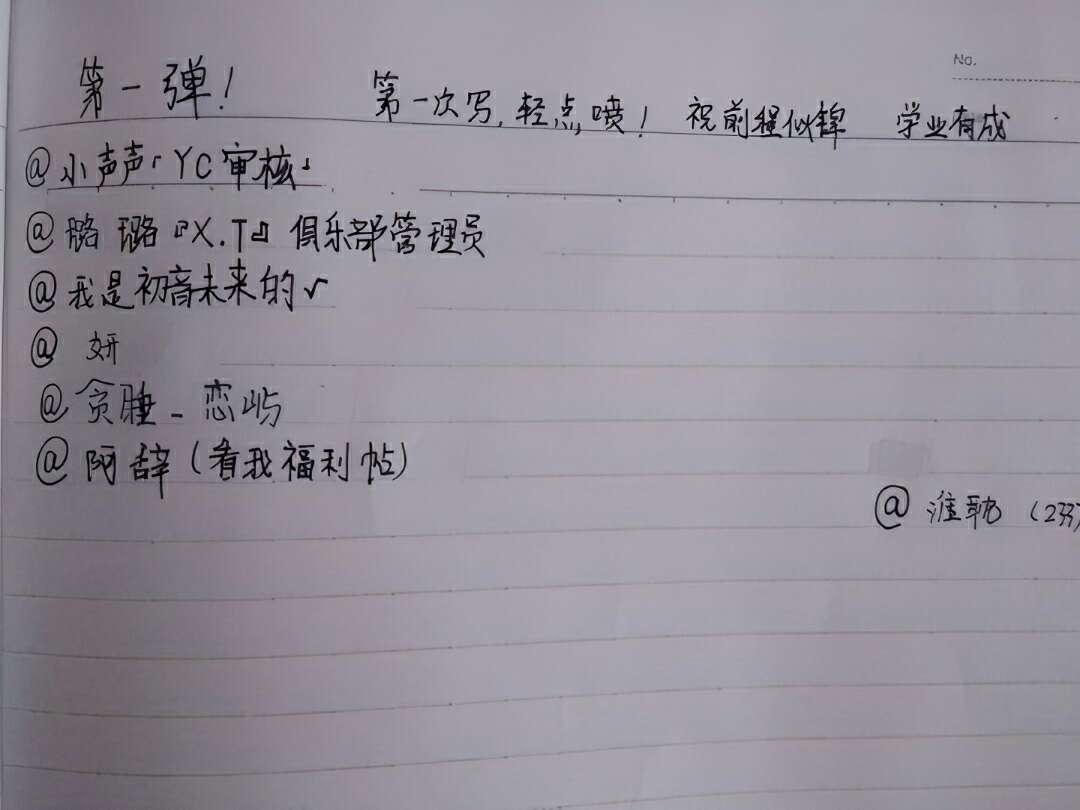 No.
第一弹! 第一次写,轻点喷! 祝前程似锦 学业有成
@小声声「YC审核」
@璐璐『X.T』俱乐部管理员
@我是初音未来的√
@ 妍
@贪睡_恋屿
@阿辞(看我福利帖)
@淮耿 (233)